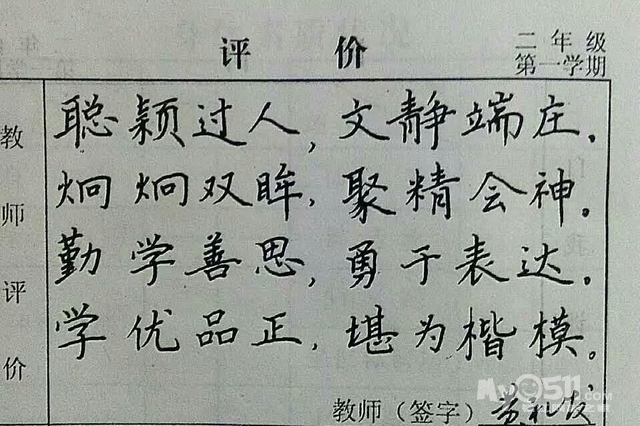 评 价
二年级
第一学期
教师评价
聪颖过人，文静端庄。
炯炯双眸，聚精会神。
勤学善思，勇于表达。
学优品正，堪为楷模。
教师（签字）